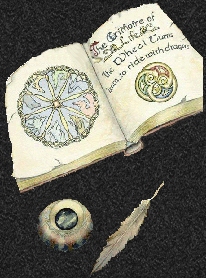 The Grimoire of
Life
The Wheel Turns
to ride with dragons